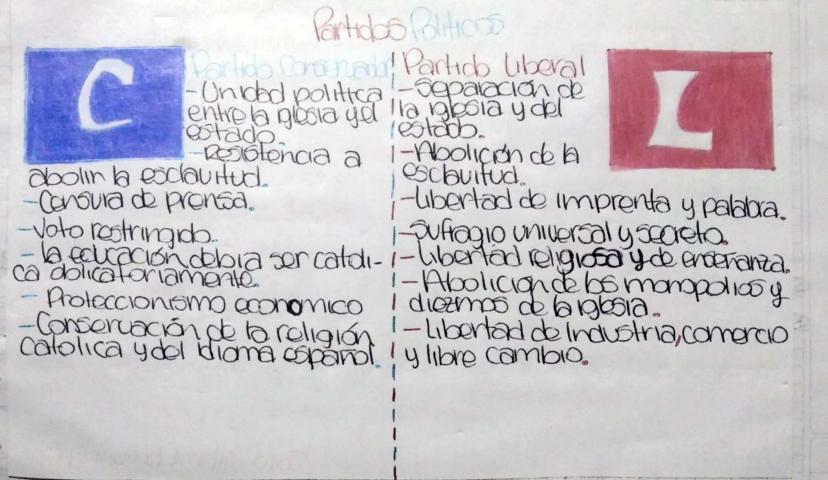 Partidos Politicos
C
Partido Conservador
-Unidad politica
entre la iglesia y el
estado.
-Resistencia a
abolir la esclavitud.
-Censura de prensa.
-Voto restringido.
-la educación debia ser catoli-
ca obligatoriamente.
-Proteccionismo economico
-Conservación de la religión
catolica y del idioma español.
Partido Liberal
L
-Separación de
la iglesia y del
estado.
-Abolición de la
esclavitud.
-Libertad de imprenta y palabra.
-Sufragio universal y secreto.
-Libertad religiosa y de enseñanza.
-Abolición de los monopolios y
diezmos de la iglesia.
-Libertad de Industria, comercio
y libre cambio.